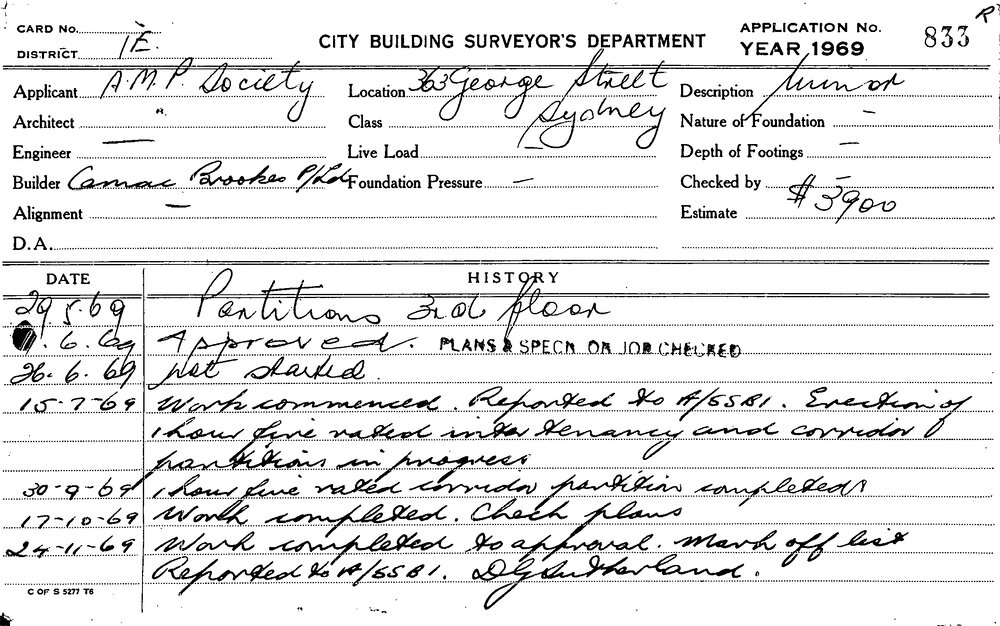 CARD No.
DISTRICT 1E.
CITY BUILDING SURVEYOR'S DEPARTMENT
APPLICATION No. 833 R
YEAR 1969
Applicant A.M.P. Society Location 363 George Street Description Minor
Architect " Class Sydney Nature of Foundation —
Engineer — Live Load — Depth of Footings —
Builder Camac Brookes P/Ltd Foundation Pressure — Checked by —
Alignment — Estimate $3900
D.A.
DATE HISTORY
29.5.69 Partitions 3rd floor
.6.69 Approved. PLANS & SPECN ON JOB CHECKED
26.6.69 Not started.
15-7-69 Work commenced. Reported to A/SSB1. Erection of
1 hour fire rated inter tenancy and corridor
partitions in progress
30-9-69 1 hour fire rated corridor partition completed
17-10-69 Work completed. Check plans
24-11-69 Work completed to approval. Mark off list
Reported to A/SSB1. DGSutherland.
C OF S 5277 T6